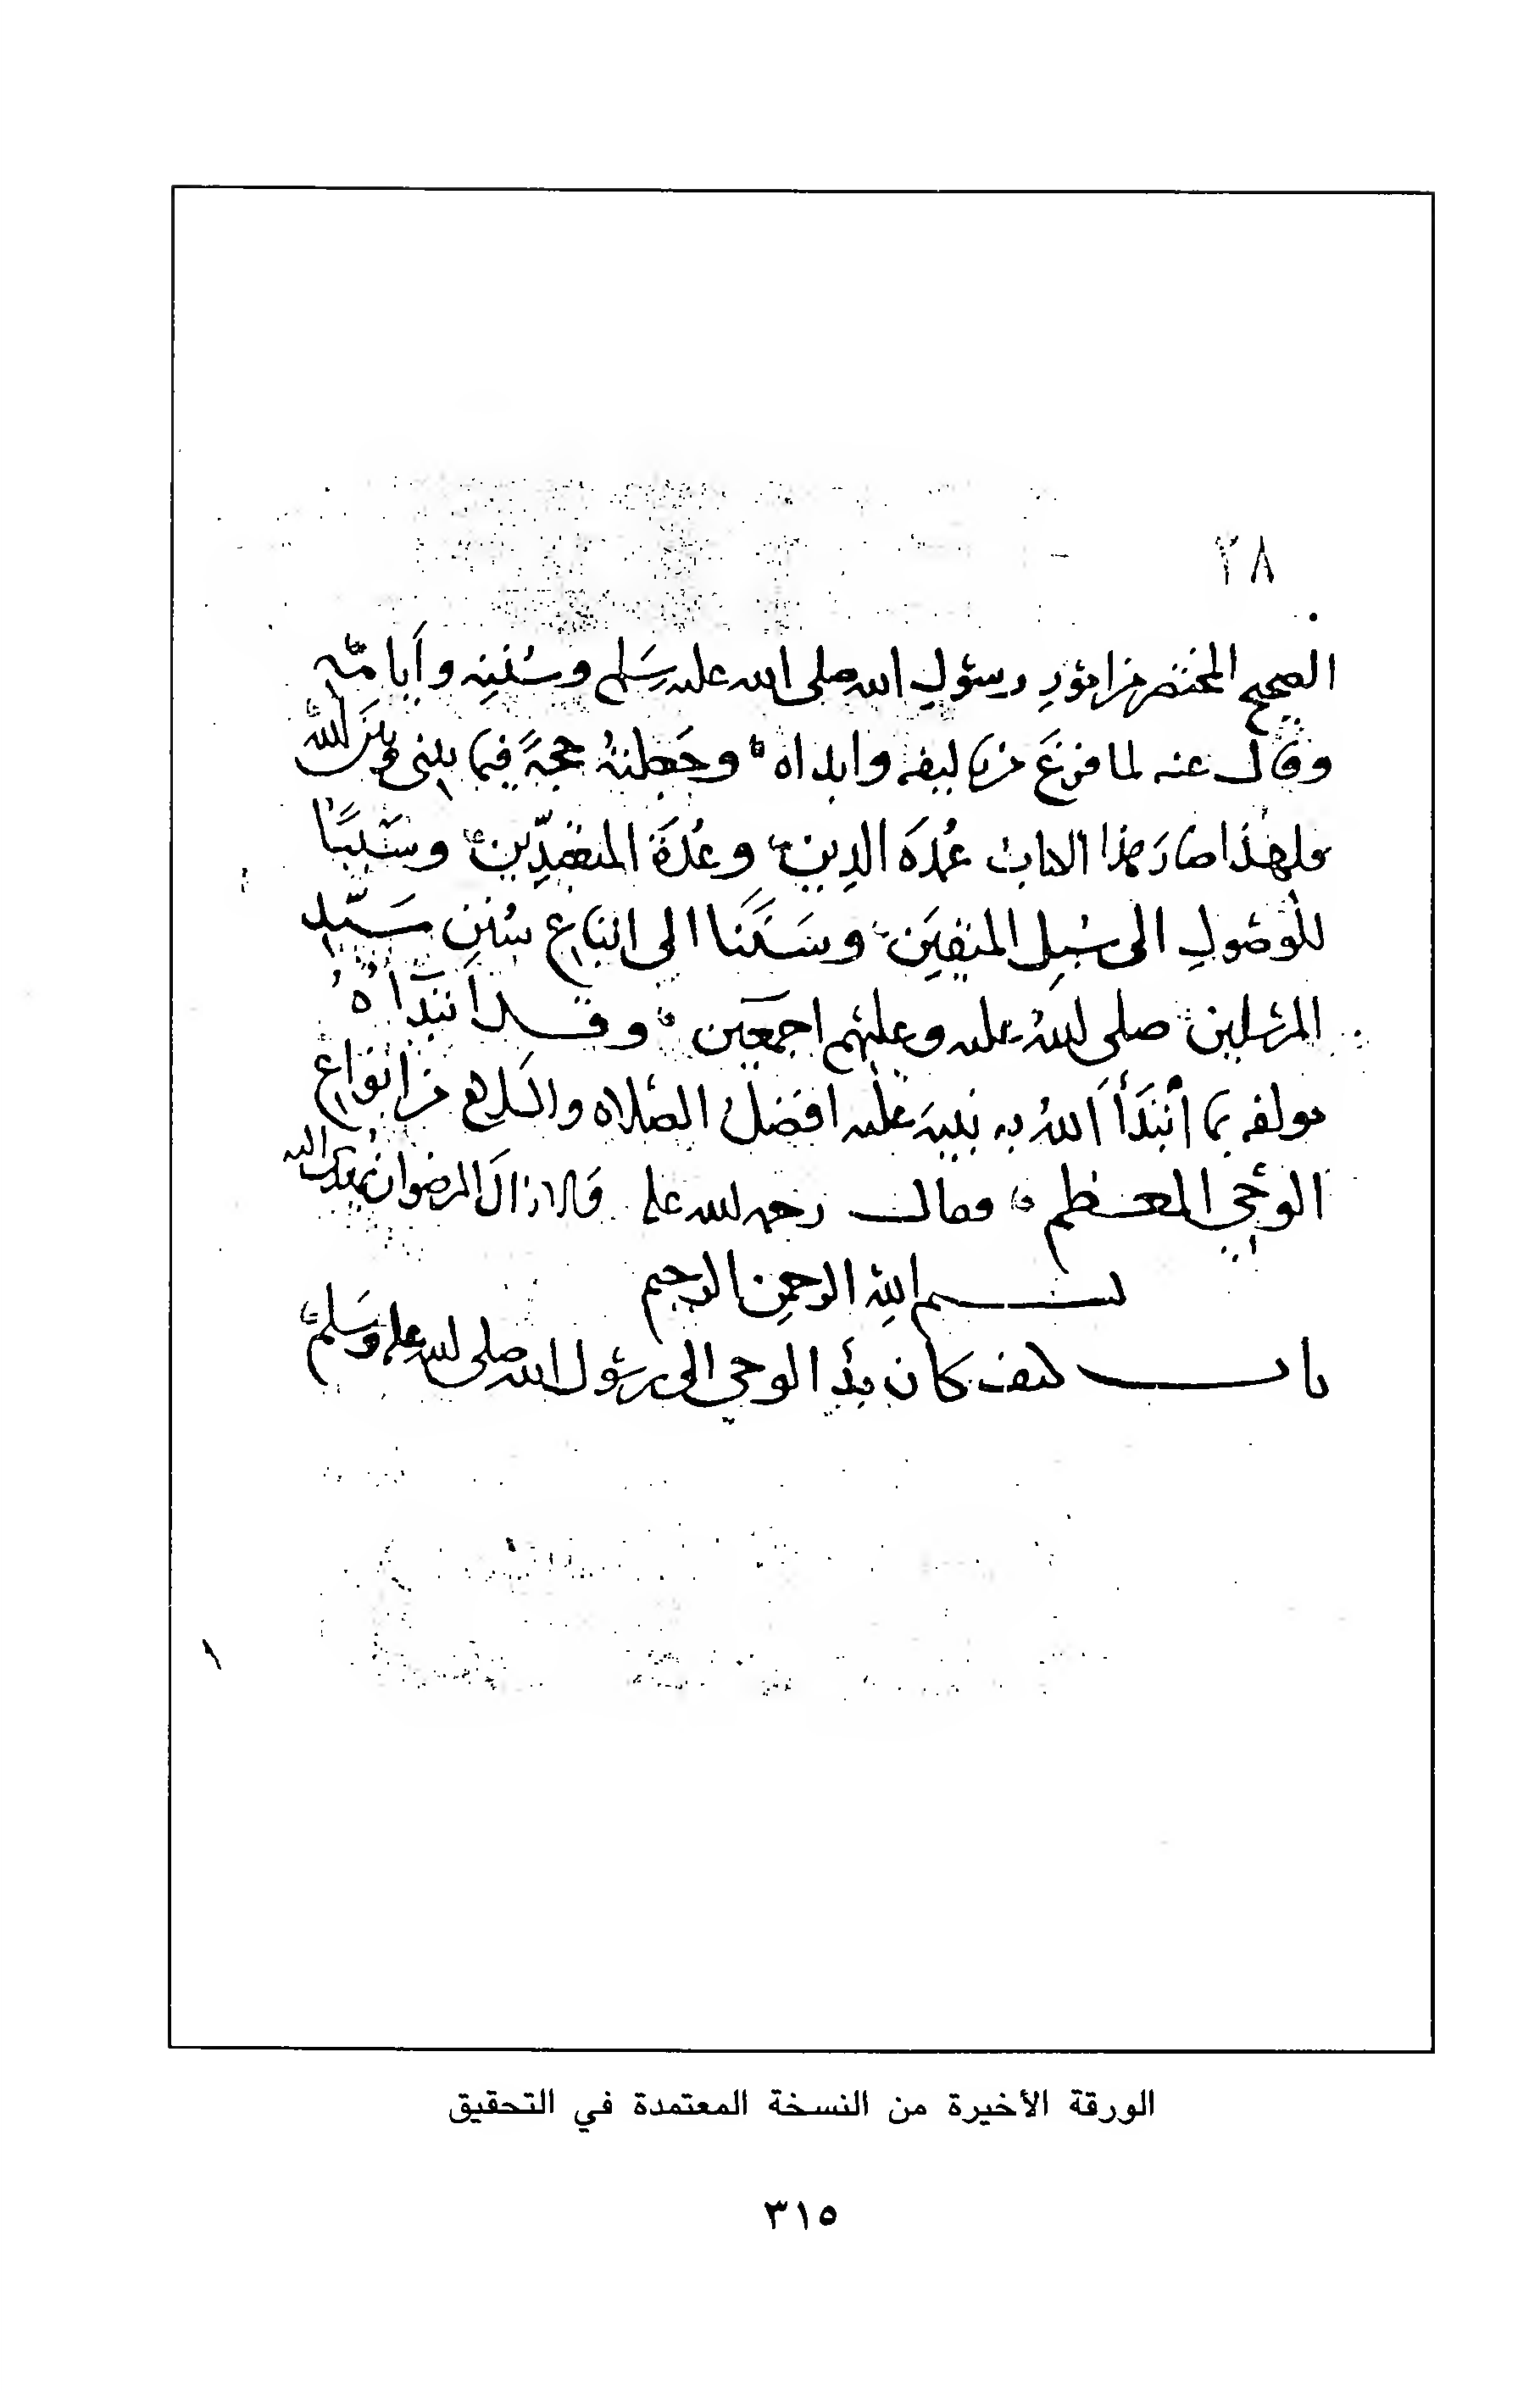 ٢٨
الصحيح المختصر من امور رسول الله صلى الله عليه وسلم وسننه وأيامه
وقال عنه لما فرغ من تاليفه وابداه وجعلته حجة فيما بيني وبين الله
ولهذا صار هذا الكتاب عمدة الدين وعدة المتعبدين وسببا
للوصول الى سبل المتقين وسننا الى اتباع سنن سيد
المرسلين صلى الله عليه وعليهم اجمعين وقد ابتدأه
مولفه بما أبتدأ الله به نبيه عليه افضل الصلاه والسلام من انواع
الوحي المعظم فقال رحمه الله قال لازال الرضوان
بسم الله الرحمن الرحيم
باب كيف كان بدأ الوحي الى رسول الله صلى الله عليه وسلم
الورقة الأخيرة من النسخة المعتمدة في التحقيق
٣١٥